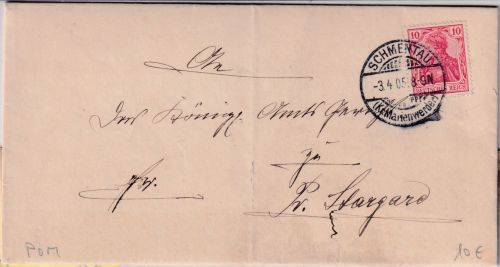 An
10 10
DEUTSCHES REICH
SCHMENTAU
-3.4.05.8-9N.
(Kr. Marienwerder)
Das Königl. Amts Gericht
zu
Fr.
Pr. Stargard
POM
10 €